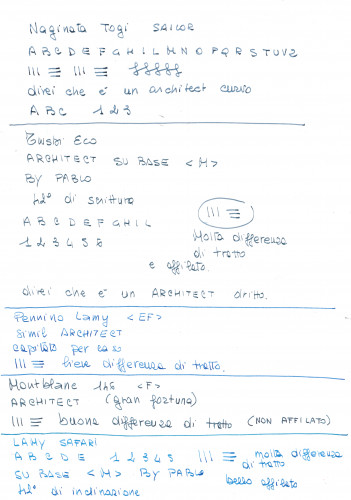 Naginata Togi SAILOR
A B C D E F G H I L M N O P Q R S T U V Z
direi che e' un architect curvo
A B C 1 2 3
Twsbi Eco
ARCHITECT SU BASE <M>
By PABLO
42° di scrittura
A B C D E F G H I L
1 2 3 4 5 8
Molta differenza
di tratto
e affilato.
direi che e' un ARCHITECT dritto.
Pennino Lamy <EF>
Simil ARCHITECT
capitato per caso
lieve differenza di tratto.
Montblanc 146 <F>
ARCHITECT (gran fortuna)
buona differenza di tratto (NON AFFILATO)
LAMY SAFARI
A B C D E 1 2 3 4 5 molta differenza
di tratto
SU BASE <M> By PABLO bello affilato
42° di inclinazione